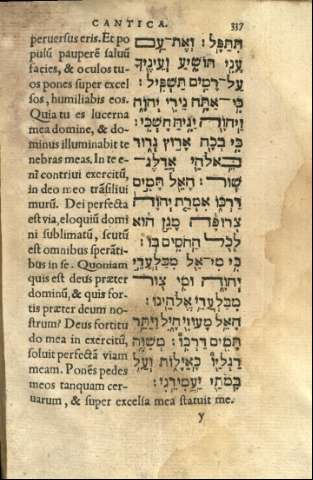 CANTICA. 337
peruersus eris. Et po
pulũ pauperẽ saluũ
facies, & oculos tu-
os pones super excel
sos, humiliabis eos.
Quia tu es lucerna
mea domine, & do-
minus illuminabit te
nebras meas. In te e-
nĩ contriui exercitũ,
in deo meo trãsiliui
murũ. Dei perfecta
est via, eloquiũ domi
ni sublimatũ, scutũ
est omnibus sperãti-
bus in se. Quoniam
quis est deus præter
dominũ, & quis for-
tis præter deum no-
strum? Deus fortitu
do mea in exercitũ,
soluit perfectã viam
meam. Ponẽs pedes
meos tanquam cer-
uarum, & super excelsa mea statuit me.
תִּתַּפָּל : וְאֶת־עַם
עָנִי תּוֹשִׁיעַ וְעֵינֶיךָ
עַל־רָמִים תַּשְׁפִּיל :
כִּי־אַתָּה נֵירִי יְהוָה
וַיהוָה יַגִּיהַּ חָשְׁכִּי :
כִּי בְכָה אָרוּץ גְּדוּד
בֵּאלֹהַי אֲדַלֶּג־
שׁוּר : הָאֵל תָּמִים
דַּרְכּוֹ אִמְרַת יְהוָה
צְרוּפָה מָגֵן הוּא
לְכֹל הַחֹסִים בּוֹ :
כִּי מִי־אֵל מִבַּלְעֲדֵי
יְהוָה וּמִי צוּר
מִבַּלְעֲדֵי אֱלֹהֵינוּ :
הָאֵל מָעוּזִּי חָיִל וַיַּתֵּר
תָּמִים דַּרְכּוֹ : מְשַׁוֶּה
רַגְלָיו כָּאַיָּלוֹת וְעַל
בָּמֹתַי יַעֲמִידֵנִי :
y